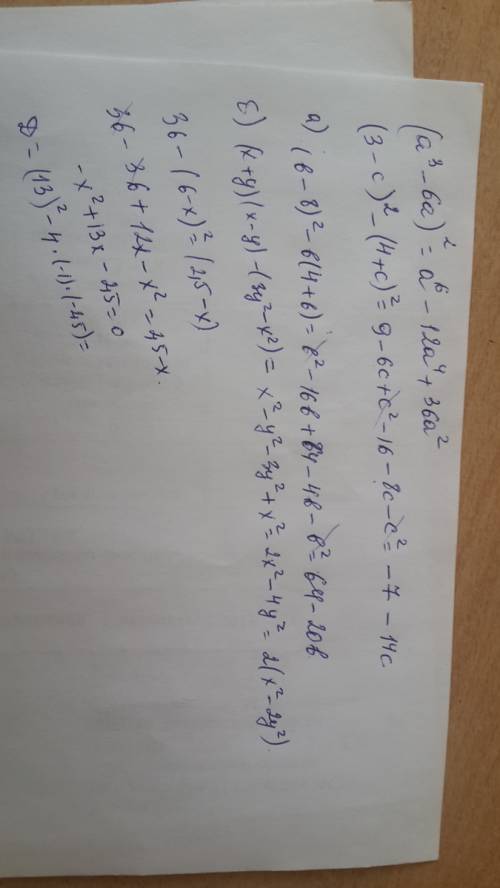 (a³ - 6a)² = a⁶ - 12a⁴ + 36a²
(3 - c)² - (4+c)² = 9 - 6c + c² - 16 - 8c - c² = -7 - 14c
а) (в - 8)² - в(4+в) = в² - 16в + 64 - 4в - в² = 64 - 20в
б) (x+y)(x-y) - (3y² - x²) = x² - y² - 3y² + x² = 2x² - 4y² = 2(x² - 2y²).
36 - (6-x)² = (2,5 - x)
36 - 36 + 12x - x² = 2,5 - x.
-x² + 13x - 2,5 = 0
D = (13)² - 4·(-1)·(-2,5) =